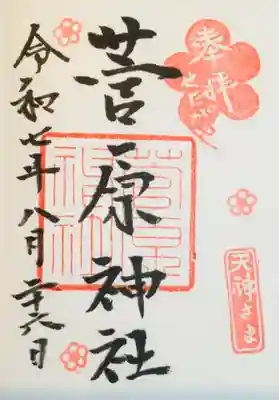 奉拝
菅原神社
天神さま
令和七年八月二十六日